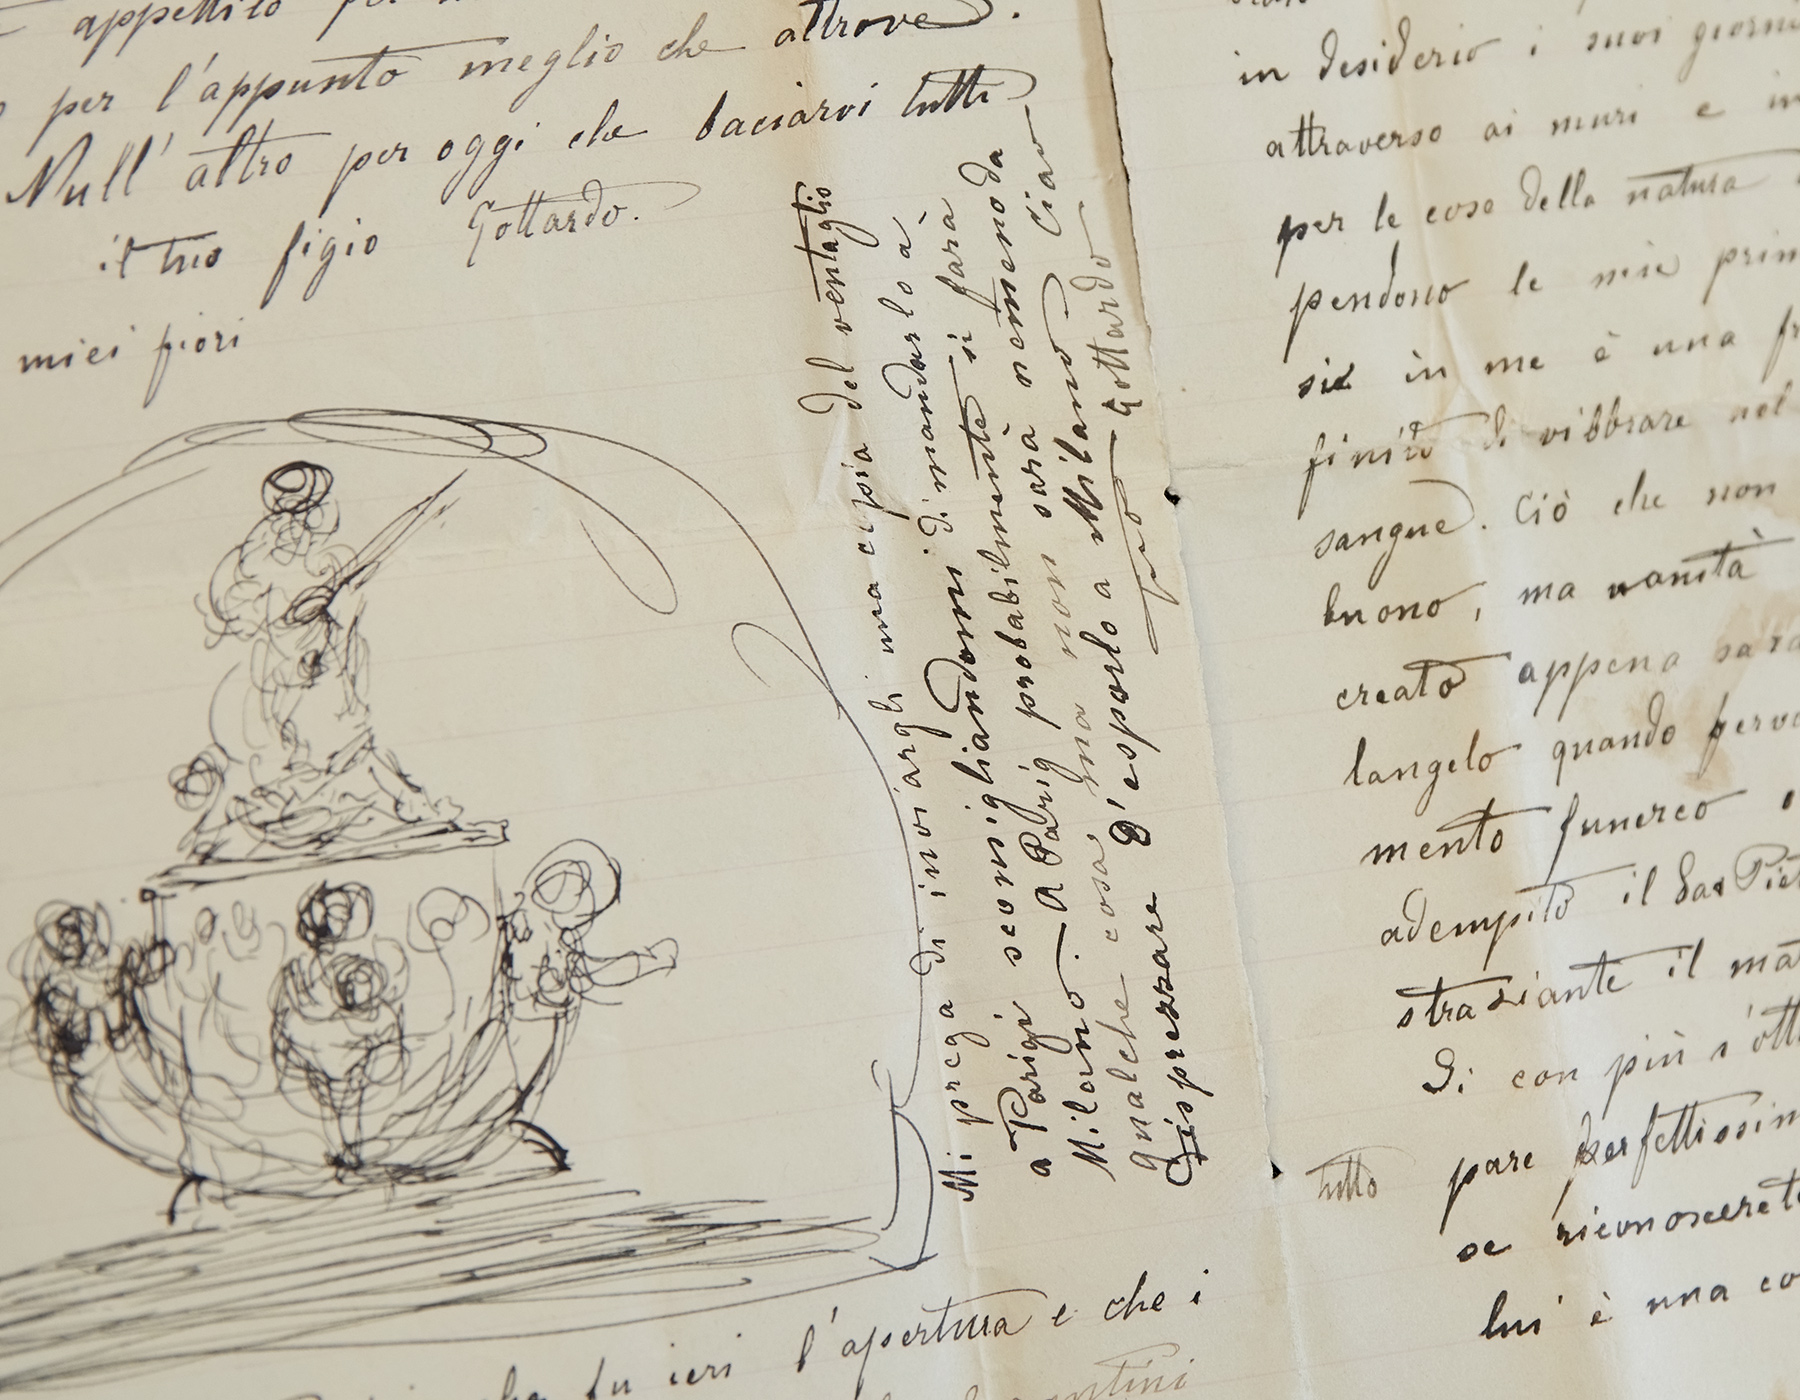 appetito per
per l'appunto meglio che altrove.
Null' altro per oggi che baciarvi tutti
il tuo figio Gottardo.
miei fiori
Mi prega di inviargli una copia del ventaglio
a Parigi sconsigliandomi di mandarlo a
Milano. A Parig probabilmente si farà
qualche cosa, ma non sarà nemmeno da
disprezzare D'esporlo a Milano. Ciao
tuo Gottardo
fu ieri l'apertura e che i
in desiderio i suoi giorni
attraverso ai muri e in
per le cose della natura
pendono le mie prim
sie in me è una fr
finito di vibbrare nel
sangue. Ciò che non
buono, ma vanità
creato appena sara
langelo quando perva
mento funereo
adempito il Sas Piet
straziante il mat
Di con più s'ott
tutto pare perfettissim
se riconoscerete
lui è una co